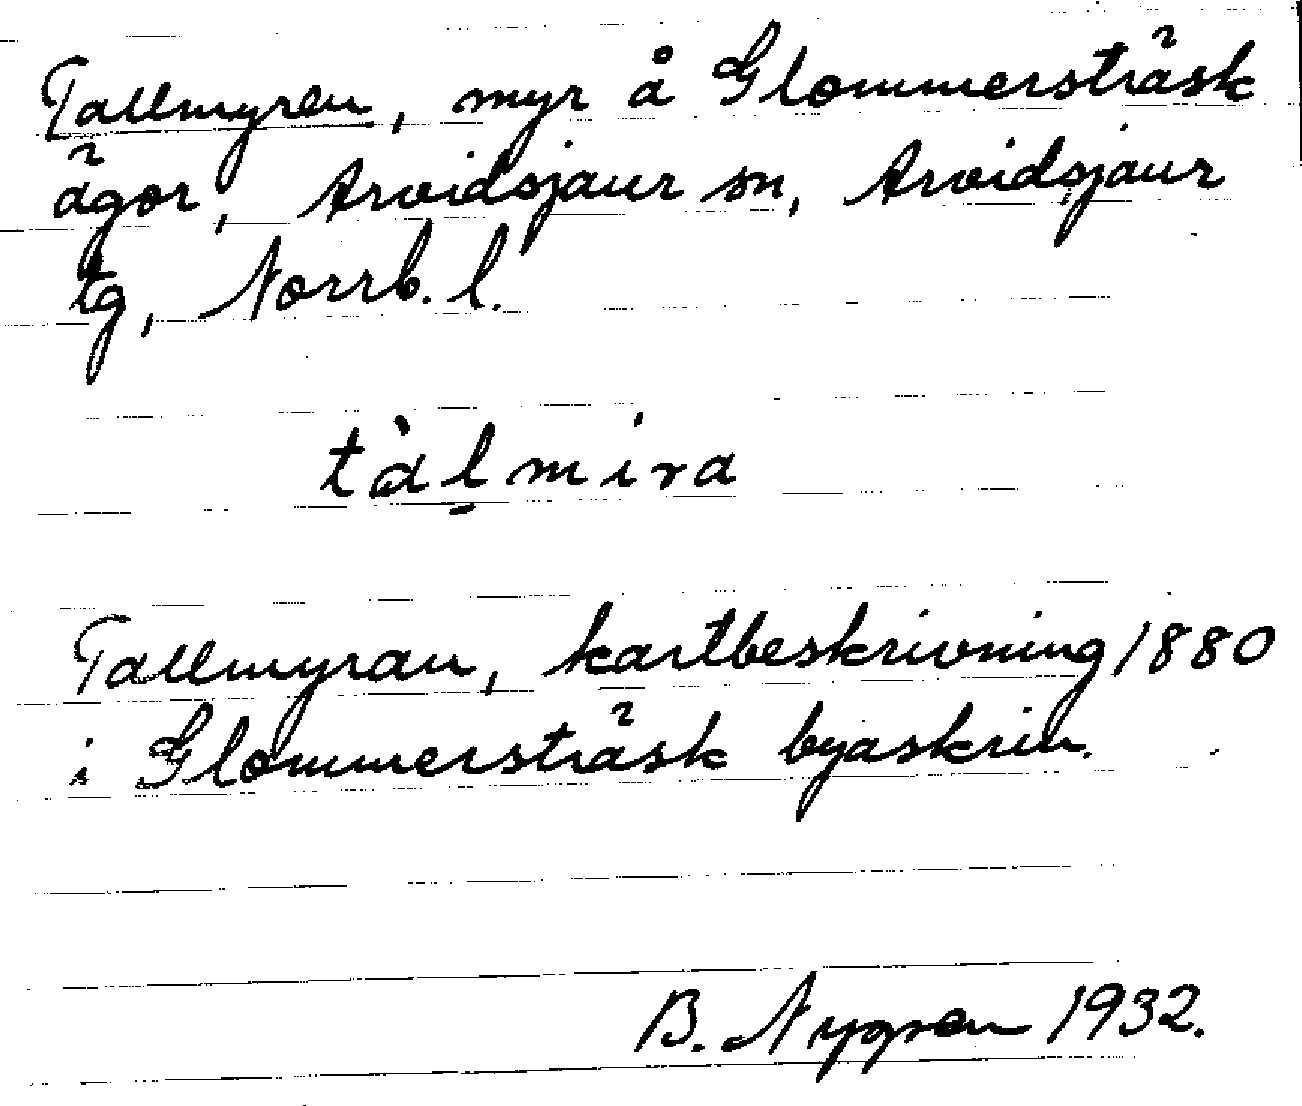 Tallmyren, myr å Glommersträsk
ägor, Arvidsjaur sn, Arvidsjaur
tg, Norrb. l.
tàl̠mira
Tallmyran, kartbeskrivning 1880
i Glommersträsk byaskrin.
B. Nygren 1932.